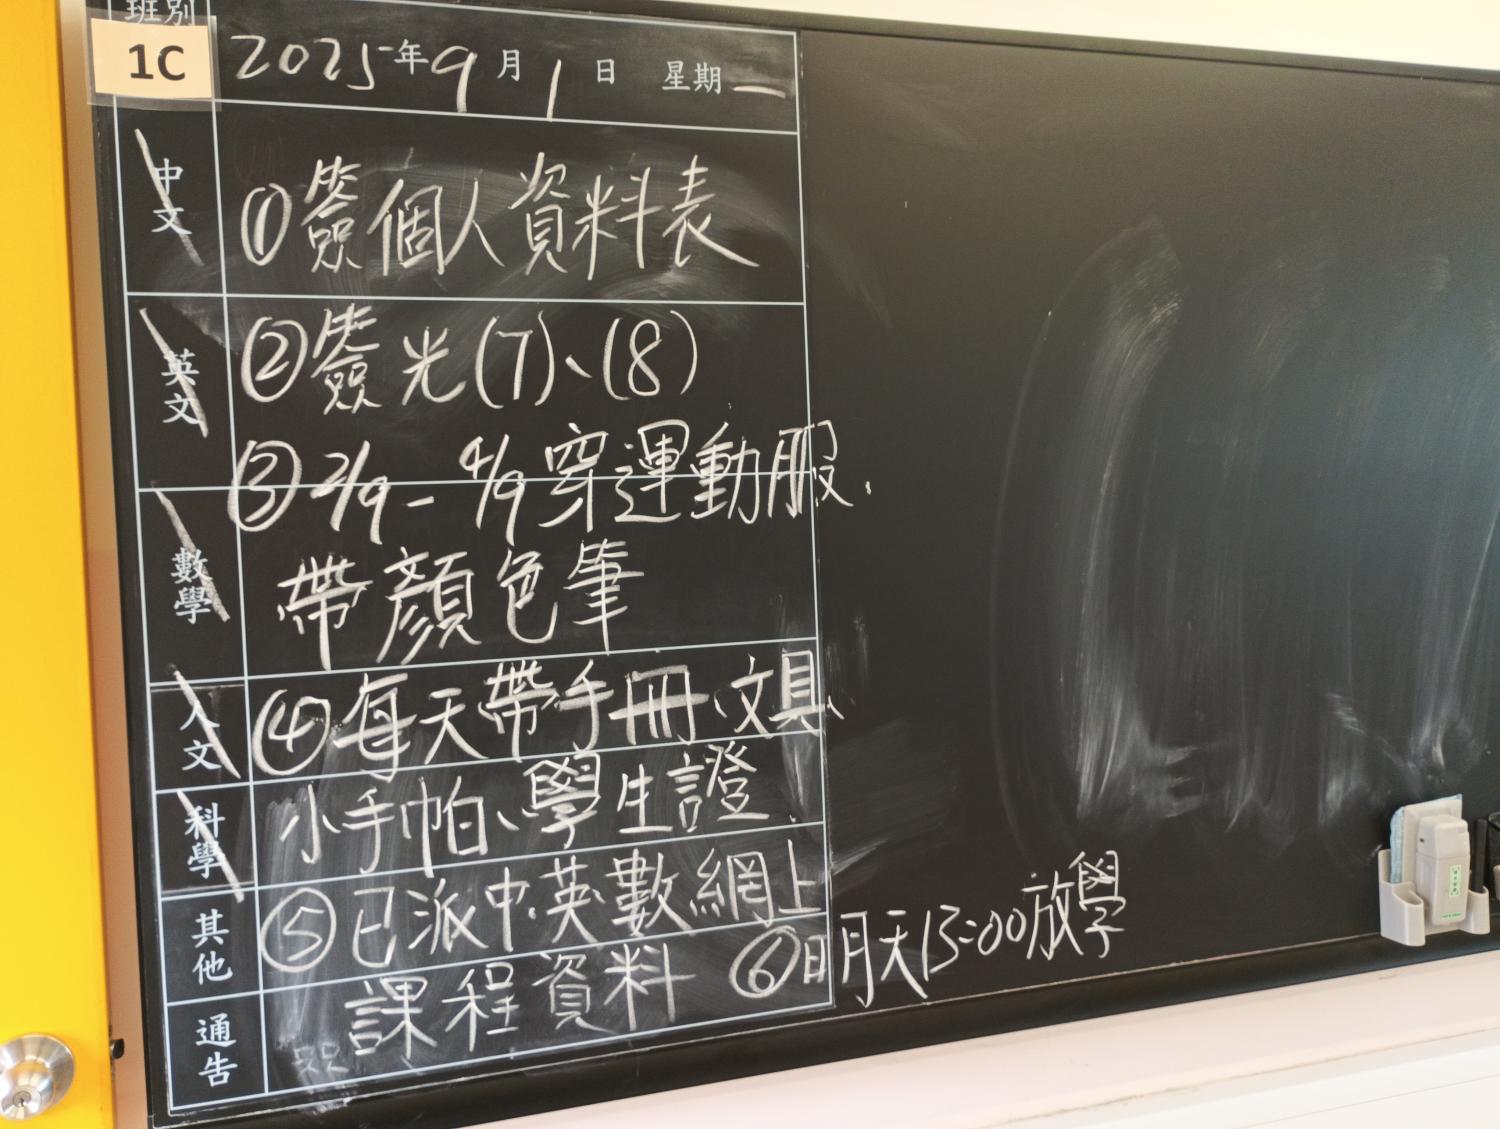 班別
1C
2025年9月1日 星期一
中文
①簽個人資料表
英文
②簽光(7)、(8)
③2/9-4/9穿運動服、
數學
帶顏色筆
人文
④每天帶手冊、文具、
科學
小手帕、學生證
其他
⑤已派中、英、數網上
課程資料
⑥明天13:00放學
通告